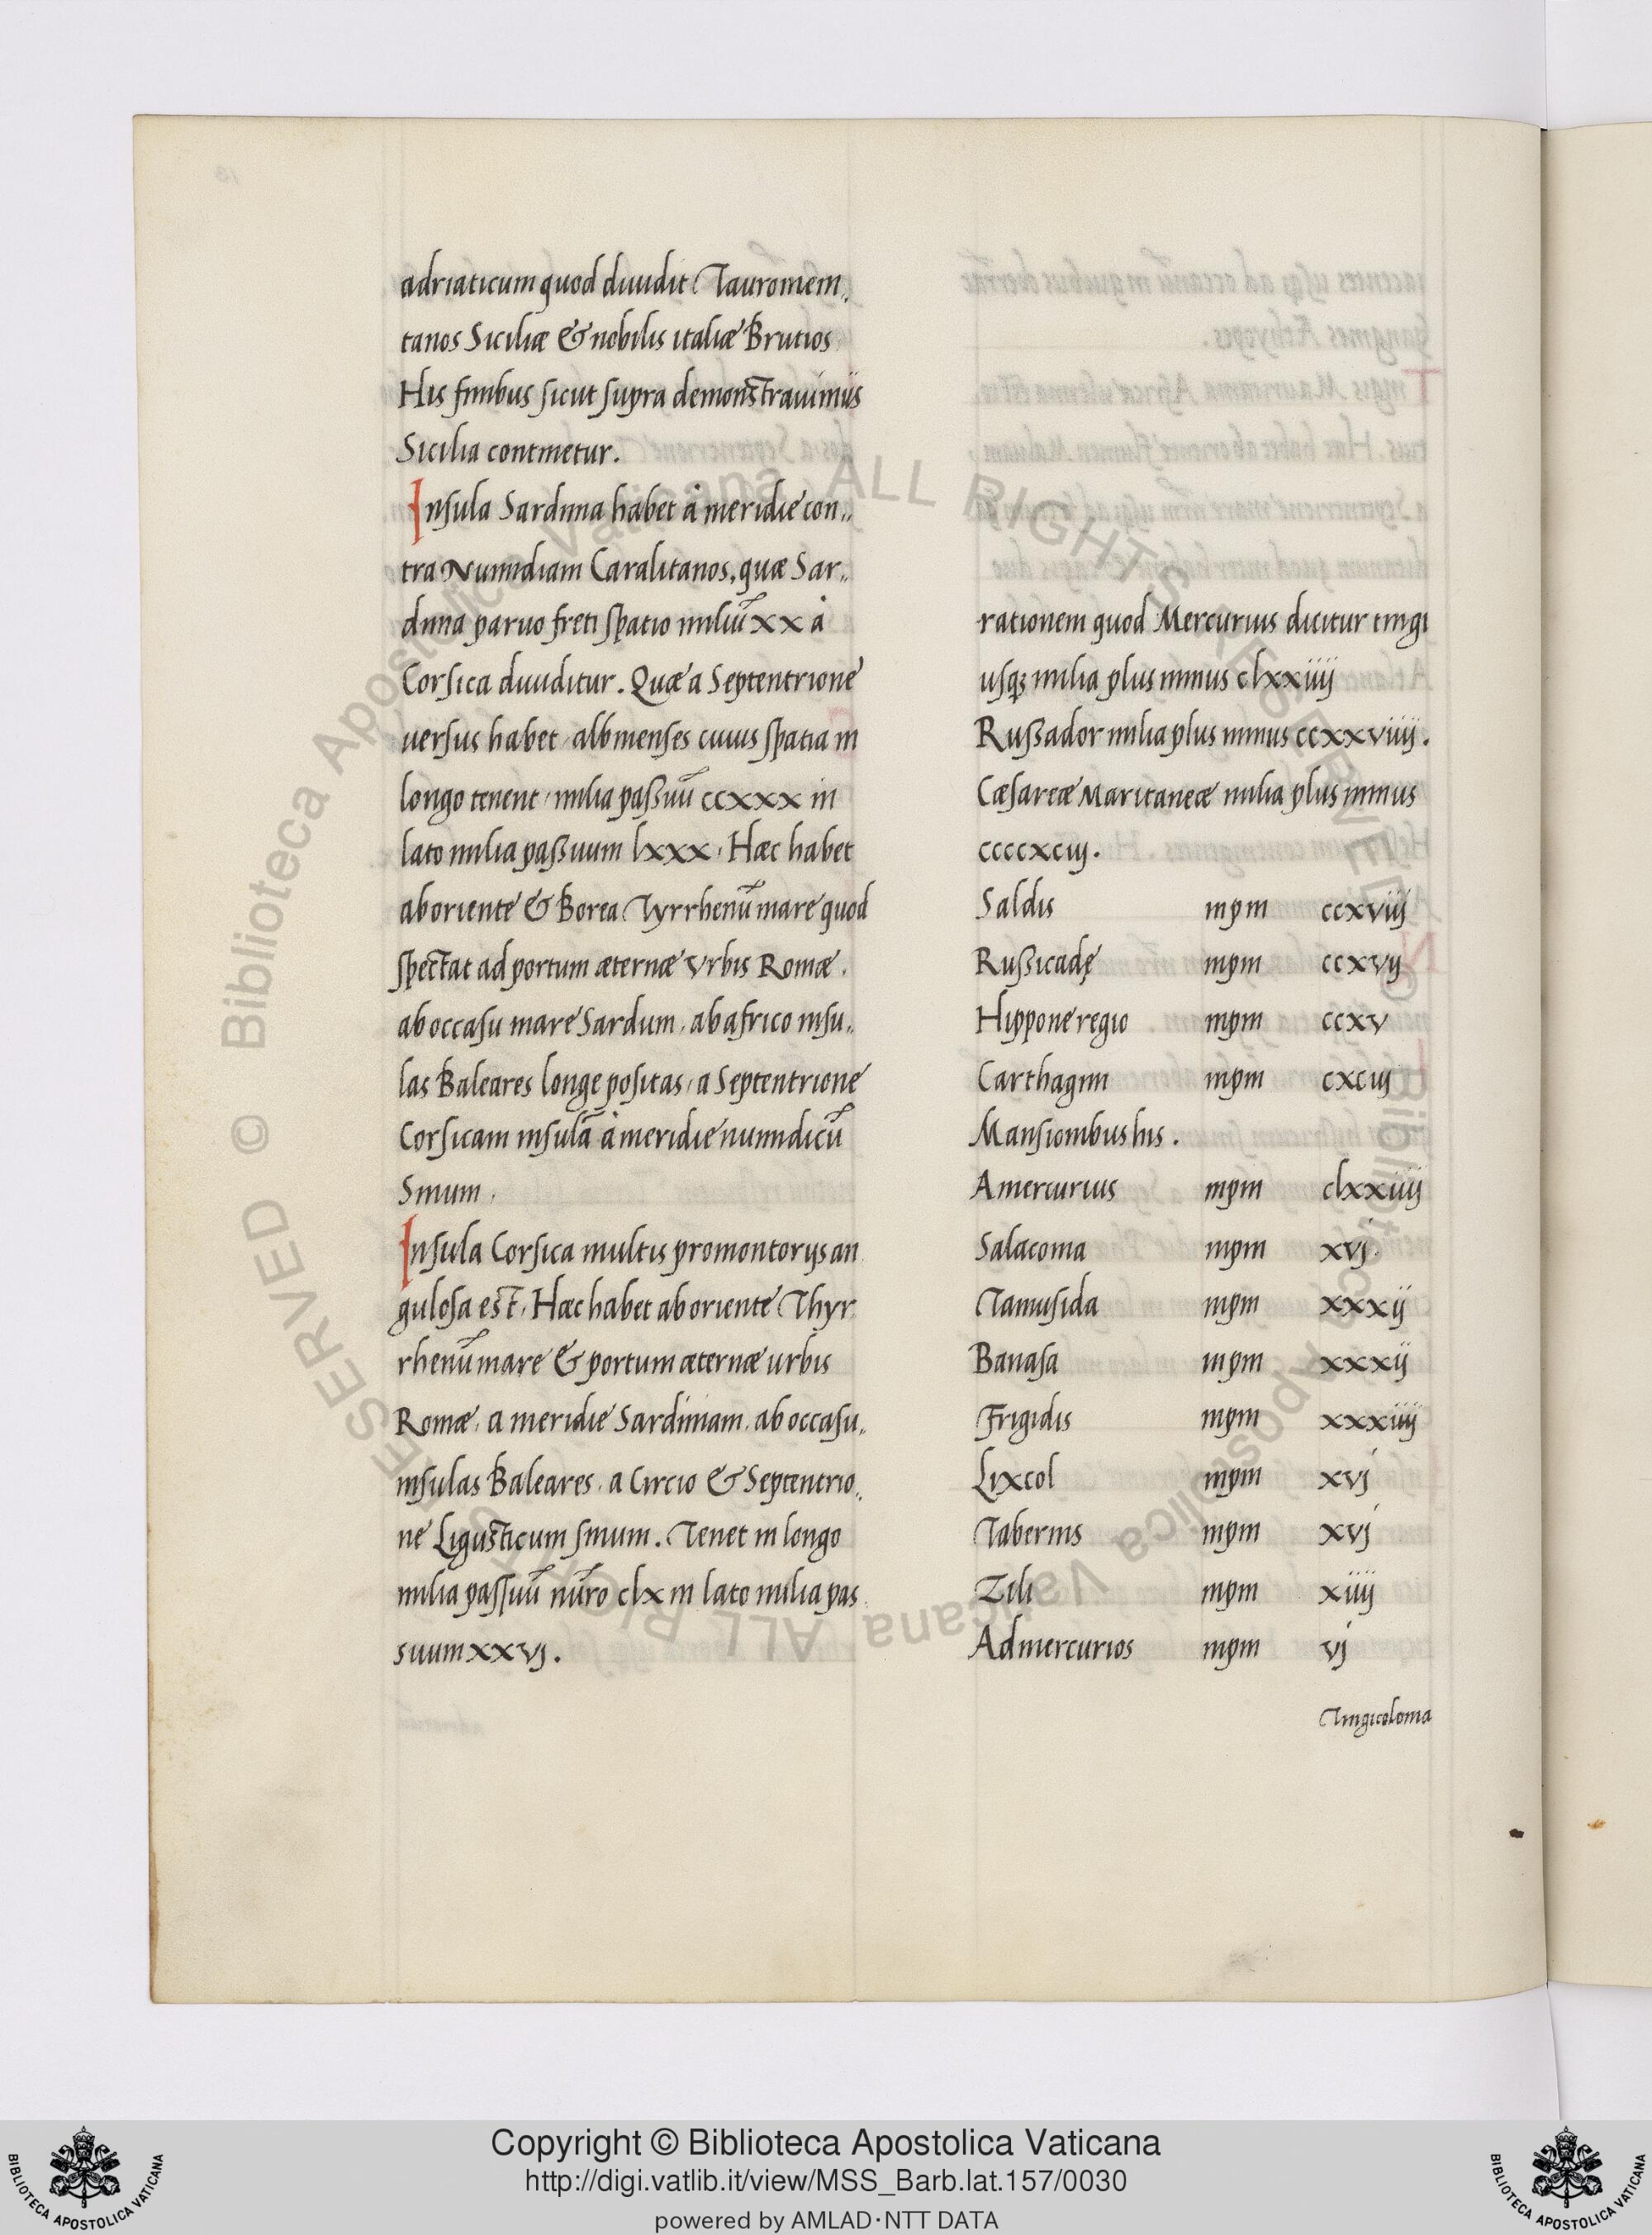 adriaticum quod diuidit Tauromeni,
tanos Siciliæ & nobilis italiæ Brutios
His finibus sicut supra demonstrauimus
Sicilia continetur.
Insula Sardinia habet à meridie con,,
tra Numidiam Caralitanos, quæ Sar,,
dinia paruo freti spatio miliū xx à
Corsica diuiditur. Quæ a Septentrione
uersus habet, albinenses cuius spatia in
longo tenent, milia passuū ccxxx in
lato milia passuum lxxx, Hæc habet
ab oriente & Borea Tyrrhenū mare quod
spectat ad portum æternæ vrbis Romæ.
ab occasu mare Sardum, ab africo insu,,
las Baleares longe positas, a Septentrione
Corsicam insulā à meridie numidicū
Sinum.
Insula Corsica multis promontorijs an
gulosa est, Hæc habet ab oriente Thyr
rhenū mare & portum æternæ urbis
Romæ, a meridie Sardiniam, ab occasu,,
insulas Baleares, a Circio & Septentrio,,
ne Ligusticum sinum. Tenet in longo
milia passuū nūro clx in lato milia pas
suum xxvj.
rationem quod Mercurius dicitur tingi
usq; milia plus minus clxxiiij
Russador milia plus minus ccxxviiij.
Cæsareæ Maritaneæ milia plus minus
ccccxciij.
Saldis mpm ccxviij
Russicadę mpm ccxvij
Hippone regio mpm ccxv
Carthagini mpm cxciij
Mansionibus his.
Amercurius mpm clxxiiij
Salaconia mpm xvj.
Tamusida mpm xxxij
Banasa mpm xxxij
Frigidis mpm xxxiiij
Lixcol mpm xvj
Tabernis mpm xvj
Zili mpm xiiij
Admercurios mpm vj
Tingicolonia
Copyright © Biblioteca Apostolica Vaticana
http://digi.vatlib.it/view/MSS_Barb.lat.157/0030
powered by AMLAD·NTT DATA
BIBLIOTECA APOSTOLICA VATICANA
BIBLIOTECA APOSTOLICA VATICANA